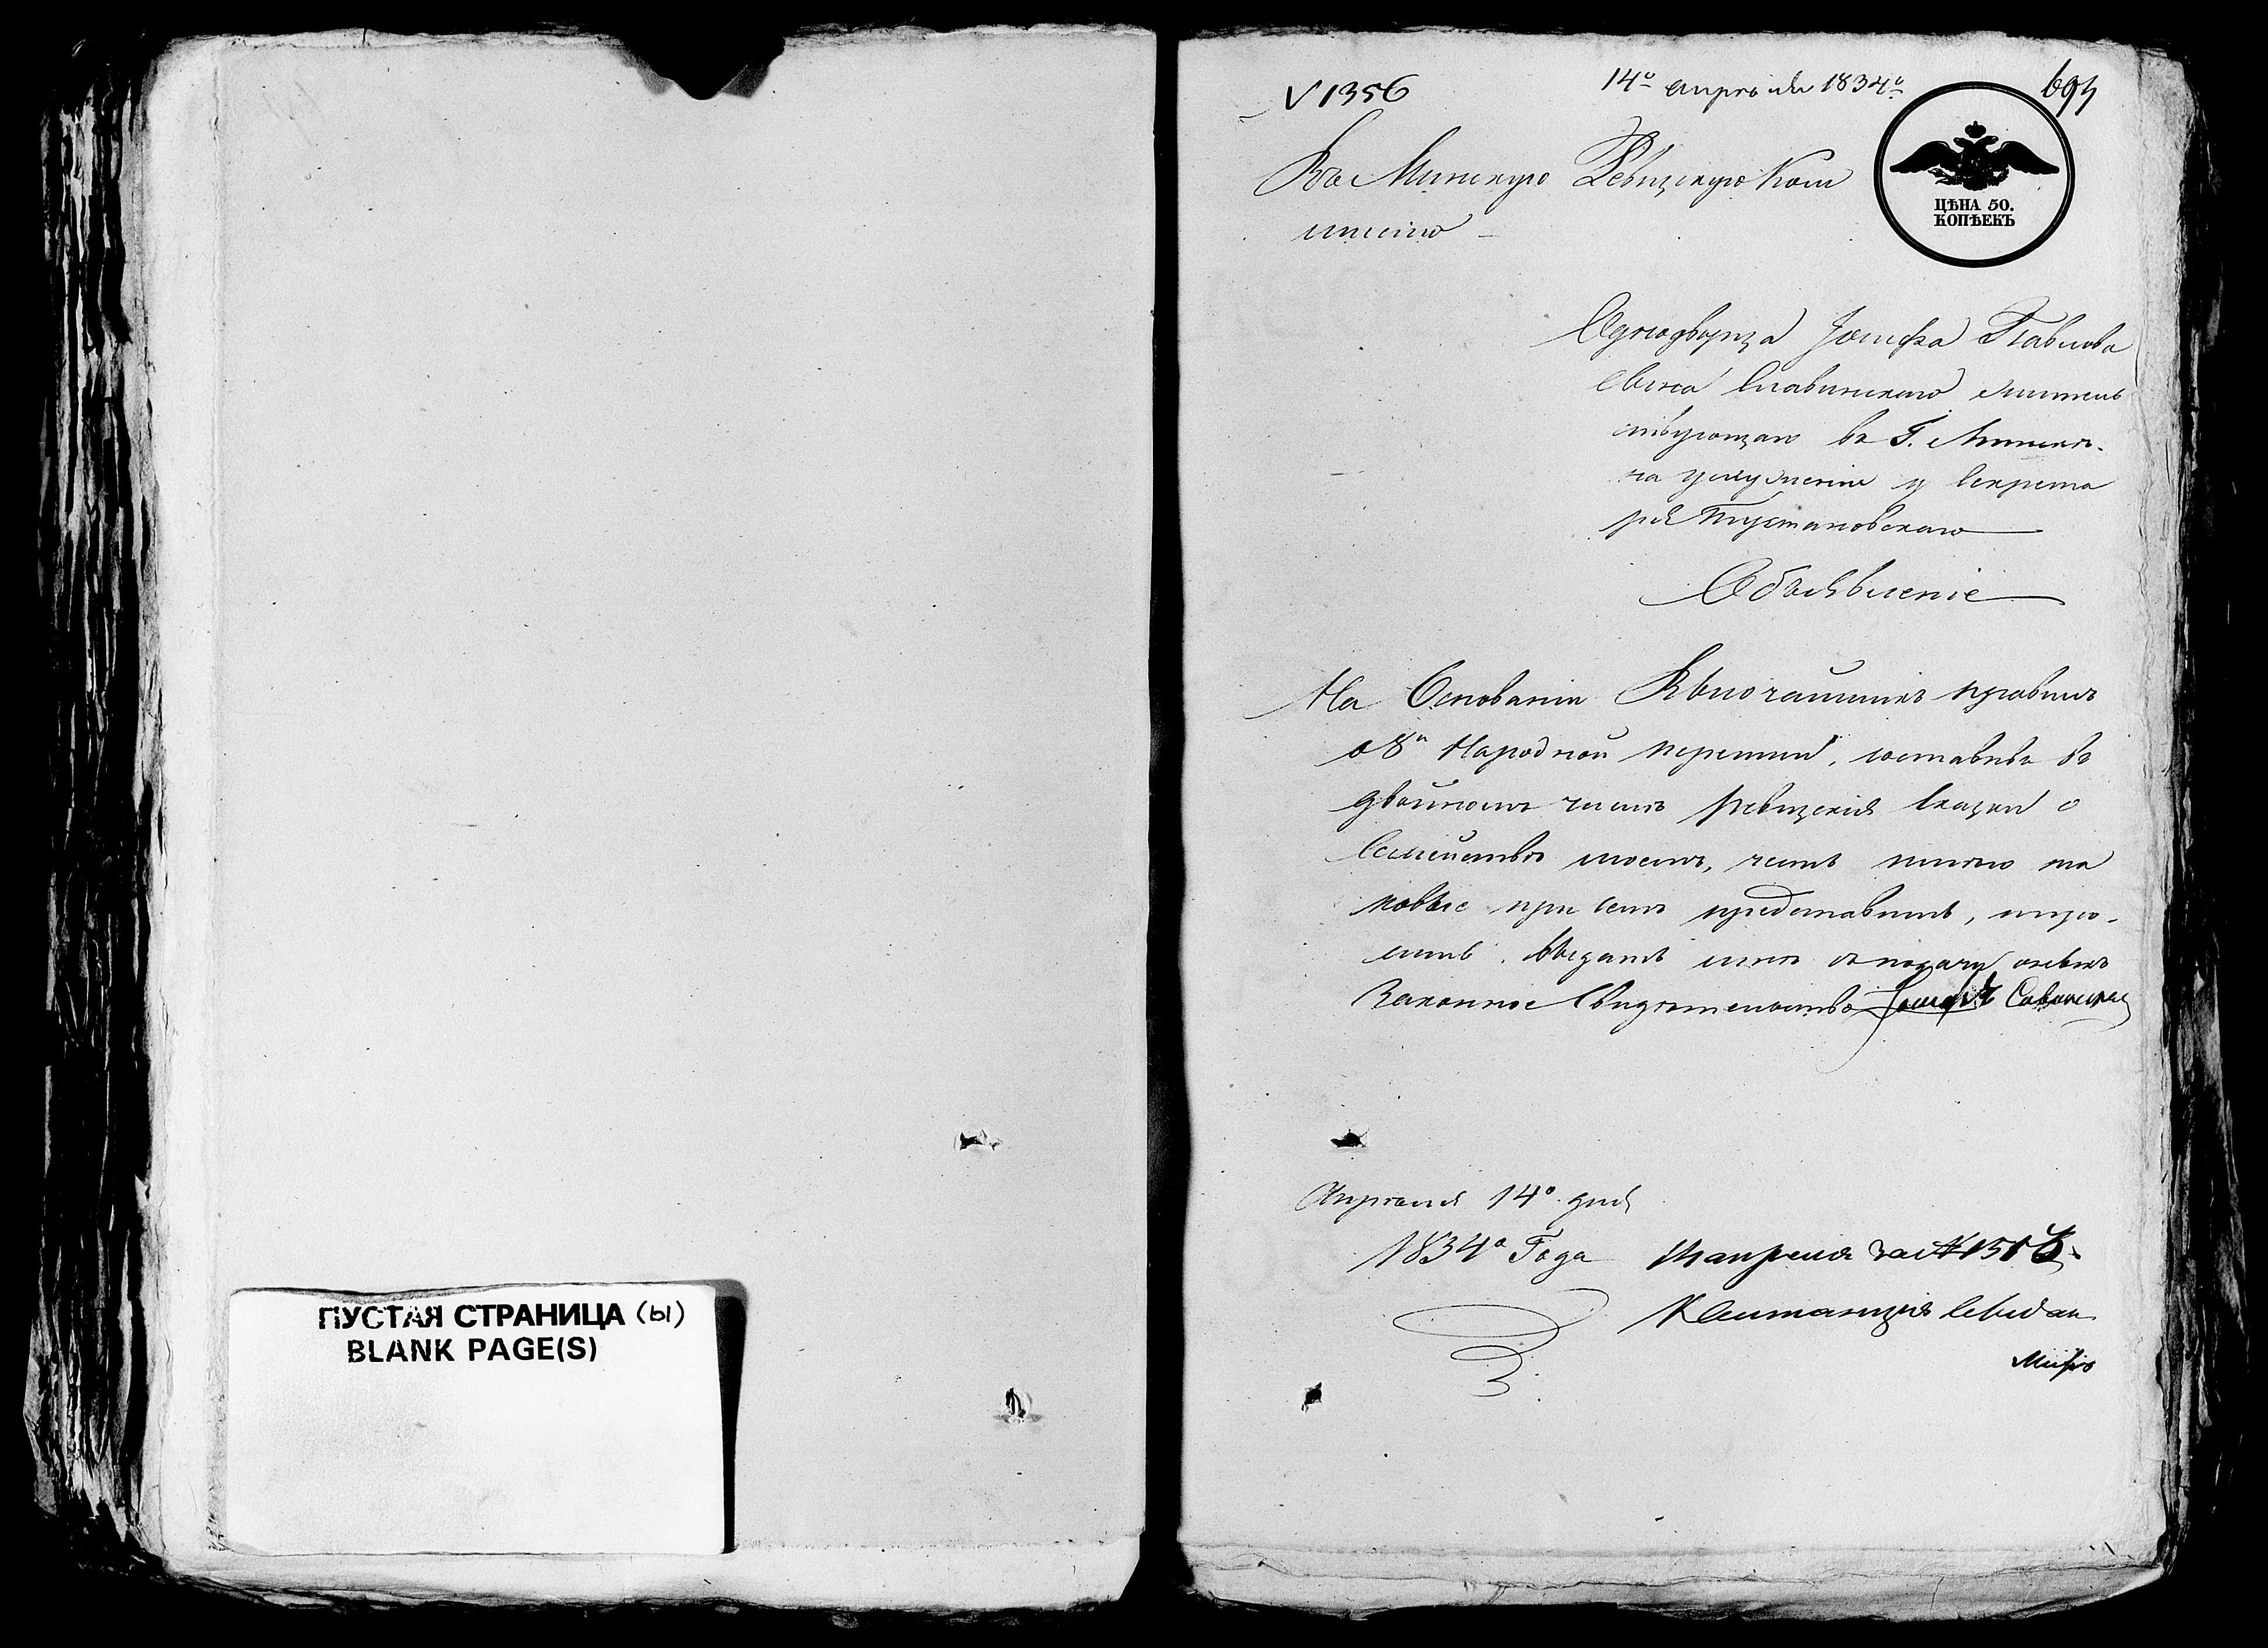 ПУСТАЯ СТРАНИЦА (ы)
BLANK PAGE(S)
V 1356
14º апрѣля 1834º
ЦѢНА 50.
КОПѢЕКЪ
Въ Минскую Ревизскую Ком
мисію
Однодворца Іосифа Павлова
сына Славинскаго жител
ствующаго въ Г. Минскѣ
на услуженіи у Секрета
ря Тустановскаго
Объявленіе
На Основаніи Высочайшихъ правилъ
о 8й Народной переписи, составивъ въ
двойномъ числѣ ревизскія Сказки о
Семействѣ моемъ, честь имѣю та
ковые при семъ представить, и про-
сить выдать мнѣ въ подачи оныхъ
Законное Свидѣтельство Іосифъ
Апрѣля 14º дня
1834º Года
апреля за №
Квитанция